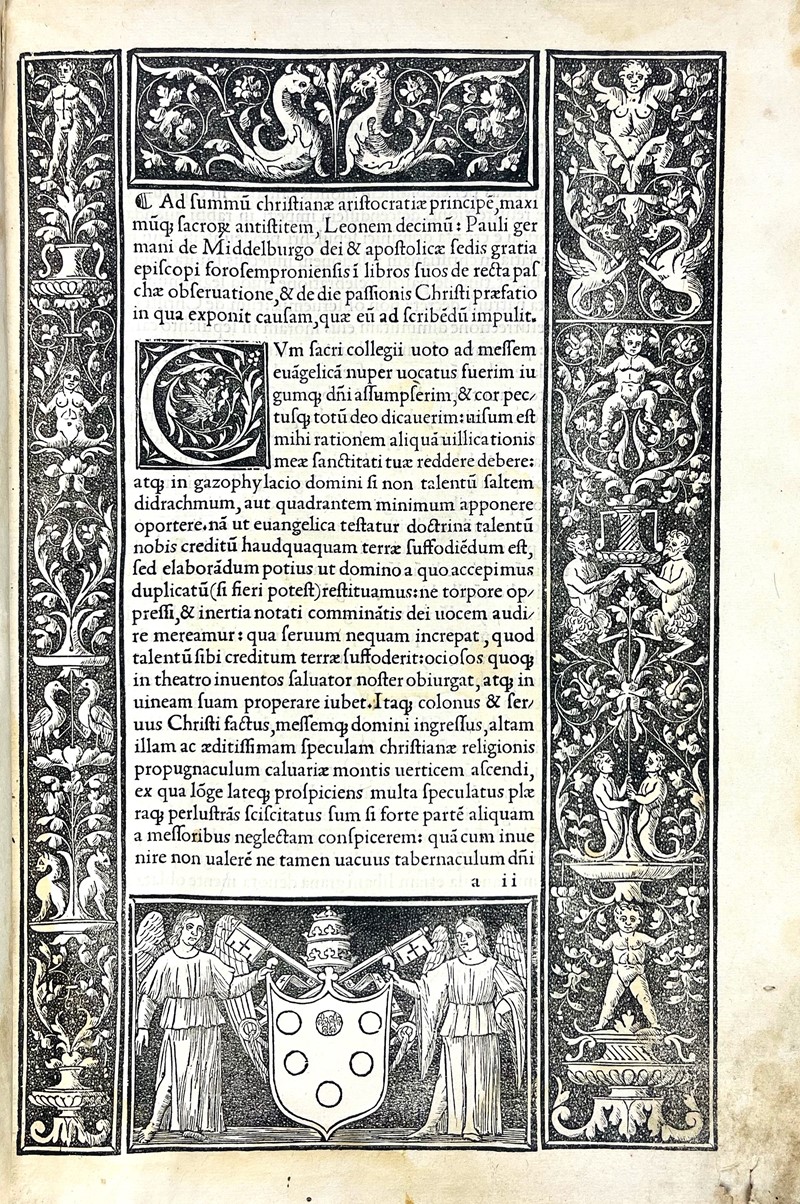 ⸿ Ad summū christianæ aristocratiæ principē, maxi
mūq; sacroꝝ antistitem, Leonem decimū: Pauli ger
mani de Middelburgo dei & apostolicæ sedis gratia
episcopi forosemproniensis ī libros suos de recta pas
chæ obseruatione, & de die passionis Christi præfatio
in qua exponit causam, quæ eū ad scribēdū impulit.
CVm sacri collegii uoto ad messem
euāgelicā nuper uocatus fuerim iu
gumq; dn̄i assumpserim, & cor pec/
tusq; totū deo dicauerim: uisum est
mihi rationem aliquā uillicationis
meæ sanctitati tuæ reddere debere:
atq; in gazophylacio domini si non talentū saltem
didrachmum, aut quadrantem minimum apponere
oportere. nā ut euangelica testatur doctrina talentū
nobis creditū haudquaquam terræ suffodiēdum est,
sed elaborādum potius ut domino a quo accepimus
duplicatū (si fieri potest) restituamus: ne torpore op/
pressi, & inertia notati comminātis dei uocem audi/
re mereamur: qua seruum nequam increpat, quod
talentū sibi creditum terræ suffoderit: ociosos quoq;
in theatro inuentos saluator noster obiurgat, atq; in
uineam suam properare iubet. Itaq; colonus & ser/
uus Christi factus, messemq; domini ingressus, altam
illam ac æditissimam speculam christianæ religionis
propugnaculum caluariæ montis uerticem ascendi,
ex qua lōge lateq; prospiciens multa speculatus plæ
raq; perlustrās sciscitatus sum si forte partē aliquam
a messoribus neglectam conspicerem: quā cum inue
nire non ualerē ne tamen uacuus tabernaculum dn̄i
a ii